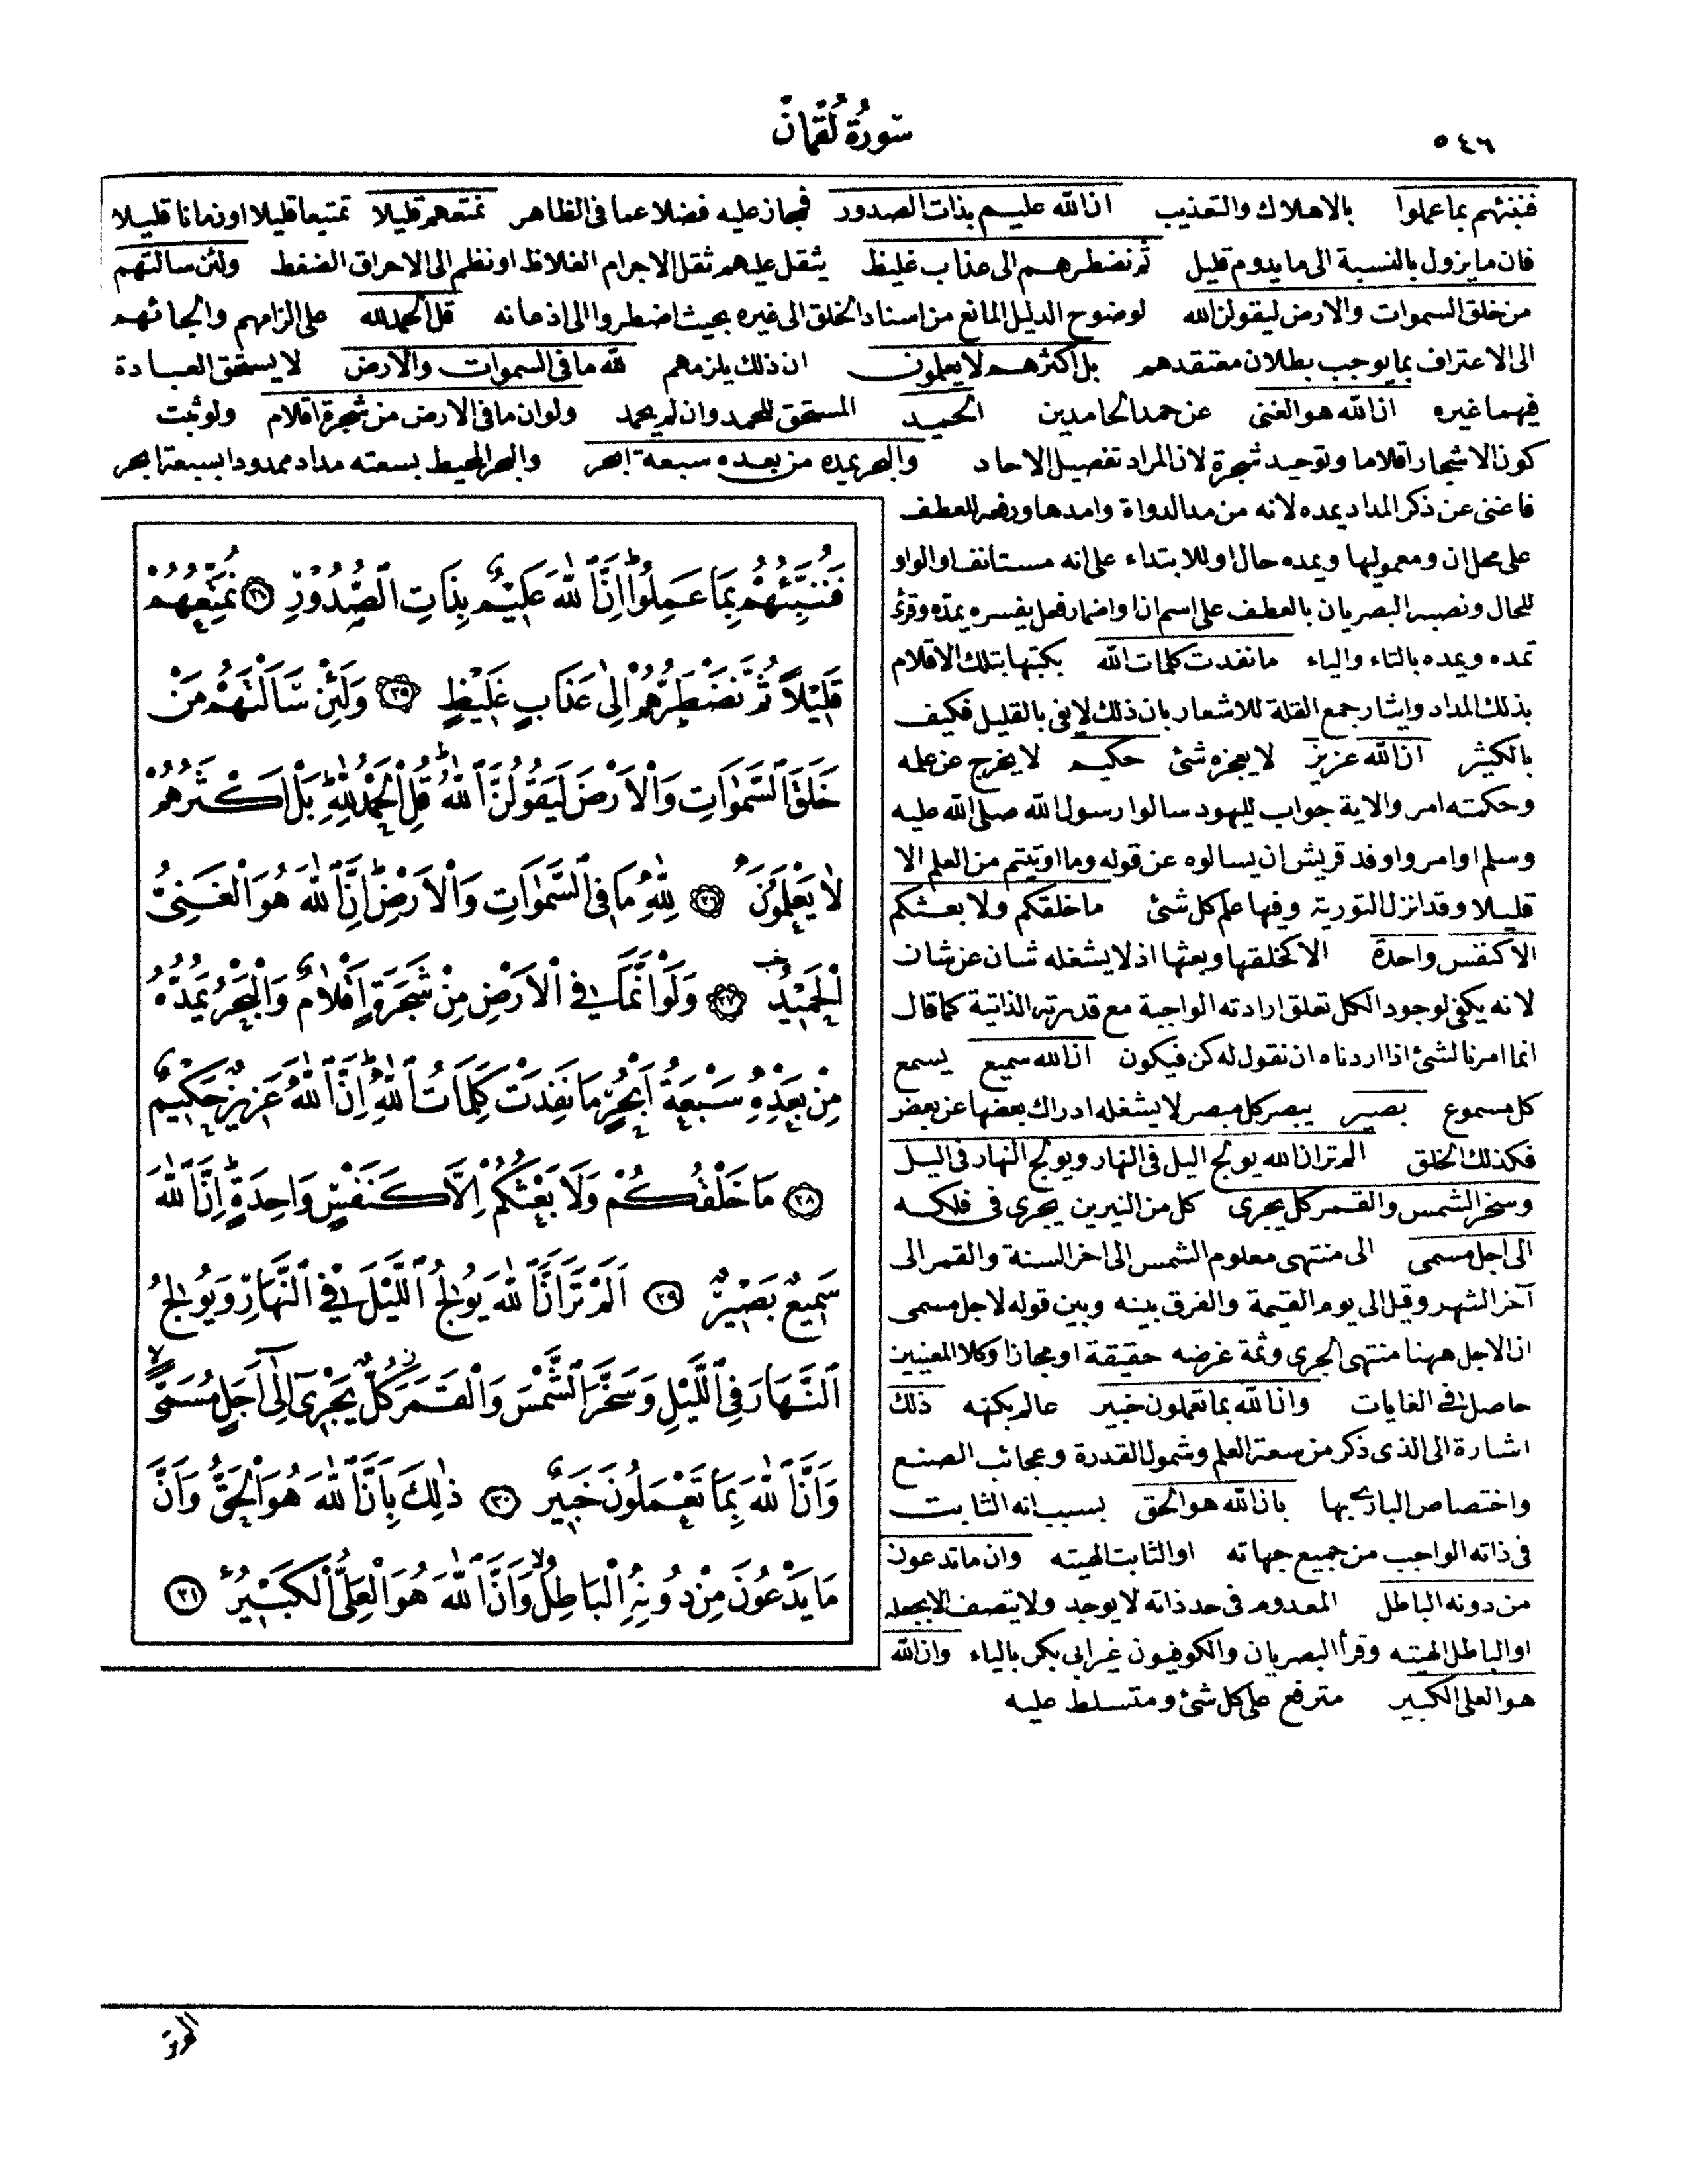 ٥٤٦
سورة لقمان
فننبئهم بما عملوا بالاهلاك والتعذيب ان الله عليم بذات الصدور فمجاز عليه فضلا عما فى الظاهر نمتعهم قليلا تمتيعا قليلا اوزمانا قليلا
فان ما يزول بالنسبة الى ما يدوم قليل ثم نضطرهم الى عذاب غليظ يثقل عليهم ثقل الاجرام الغلاظ او نظم الى الاحراق الضغط ولئن سالتهم
من خلق السموات والارض ليقولن الله لوضوح الدليل المانع من اسناد الخلق الى غيره بحيث اضطروا الى اذعانه قل الحمد لله على الزامهم والجائهم
الى الاعتراف بما يوجب بطلان معتقدهم بل اكثرهم لا يعلمون ان ذلك يلزمهم لله ما فى السموات والارض لا يستحق العبادة
فيهما غيره ان الله هو الغنى عن حمد الحامدين الحميد المستحق للحمد وان لم يحمد ولو ان ما فى الارض من شجرة اقلام ولو ثبت
كون الاشجار اقلاما وتوحيد شجرة لان المراد تفصيل الاحاد والبحر يمده من بعده سبعة ابحر والبحر المحيط بسعته مداد ممدودا بسبعة ابحر
فاغنى عن ذكر المداد يمده لانه من مد الدواة وامدها ورفعه للعطف
على محل ان ومعمولها ويمده حال او للابتداء على انه مستانف والواو
للحال ونصبه البصريان بالعطف على اسم ان او اضمار فعل يفسره يمده وقرئ
تمده ويمده بالتاء والياء ما نفدت كلمات الله بكتبها بتلك الاقلام
بذلك المداد وايثار جمع القلة للاشعار بان ذلك لا يفى بالقليل فكيف
بالكثير ان الله عزيز لا يعجزه شئ حكيم لا يخرج عن علمه
وحكمته امر والاية جواب لليهود سالوا رسول الله صلى الله عليه
وسلم او امروا وفد قريش ان يسالوه عن قوله وما اوتيتم من العلم الا
قليلا وقد انزل التورية وفيها علم كل شئ ما خلقكم ولا بعثكم
الا كنفس واحدة الا كخلقها وبعثها اذ لا يشغله شان عن شان
لانه يكفى لوجود الكل تعلق ارادته الواجبة مع قدرته الذاتية كما قال
انما امرنا لشئ اذا اردناه ان نقول له كن فيكون ان الله سميع يسمع
كل مسموع بصير يبصر كل مبصر لا يشغله ادراك بعضها عن بعض
فكذلك الخلق الم تر ان الله يولج اليل فى النهار ويولج النهار فى اليل
وسخر الشمس والقمر كل يجرى كل من النيرين يجرى فى فلكه
الى اجل مسمى الى منتهى معلوم الشمس الى اخر السنة والقمر الى
آخر الشهر وقيل الى يوم القيمة والفرق بينه وبين قوله لاجل مسمى
ان الاجل ههنا منتهى الجرى وثمة غرضه حقيقة او مجازا وكلا المعنيين
حاصل فى الغايات وان الله بما تعملون خبير عالم بكنهه ذلك
اشارة الى الذى ذكر من سعة العلم وشمول القدرة وعجائب الصنع
واختصاص البارى بها بان الله هو الحق بسبب انه الثابت
فى ذاته الواجب من جميع جهاته او الثابت الهيته وان ما تدعون
من دونه الباطل المعدوم فى حد ذاته لا يوجد ولا يتصف الا بجعله
او الباطل الهيته وقرأ البصريان والكوفيون غير ابى بكر بالياء وان الله
هو العلى الكبير مترفع على كل شئ ومتسلط عليه
فَنُنَبِّئُهُمْ بِمَا عَمِلُواۜ اِنَّ اللّٰهَ عَلٖيمٌ بِذَاتِ الصُّدُورِ ﴿٢٣﴾ نُمَتِّعُهُمْ
قَلٖيلًا ثُمَّ نَضْطَرُّهُمْ اِلٰى عَذَابٍ غَلٖيظٍ ﴿٢٤﴾ وَلَئِنْ سَاَلْتَهُمْ مَنْ
خَلَقَ السَّمٰوَاتِ وَالْاَرْضَ لَيَقُولُنَّ اللّٰهُ قُلِ الْحَمْدُ لِلّٰهِ بَلْ اَكْثَرُهُمْ
لَا يَعْلَمُونَ ﴿٢٥﴾ لِلّٰهِ مَا فِى السَّمٰوَاتِ وَالْاَرْضِ اِنَّ اللّٰهَ هُوَ الْغَنِىُّ
الْحَمٖيدُ ﴿٢٦﴾ وَلَوْ اَنَّ مَا فِى الْاَرْضِ مِنْ شَجَرَةٍ اَقْلَامٌ وَالْبَحْرُ يَمُدُّهُ
مِنْ بَعْدِهٖ سَبْعَةُ اَبْحُرٍ مَا نَفِدَتْ كَلِمَاتُ اللّٰهِ اِنَّ اللّٰهَ عَزٖيزٌ حَكٖيمٌ
﴿٢٨﴾ مَا خَلْقُكُمْ وَلَا بَعْثُكُمْ اِلَّا كَنَفْسٍ وَاحِدَةٍ اِنَّ اللّٰهَ
سَمٖيعٌ بَصٖيرٌ ﴿٢٩﴾ اَلَمْ تَرَ اَنَّ اللّٰهَ يُولِجُ اللَّيْلَ فِى النَّهَارِ وَيُولِجُ
النَّهَارَ فِى اللَّيْلِ وَسَخَّرَ الشَّمْسَ وَالْقَمَرَ كُلٌّ يَجْرٖى اِلٰى اَجَلٍ مُسَمًّى
وَاَنَّ اللّٰهَ بِمَا تَعْمَلُونَ خَبٖيرٌ ﴿٣٠﴾ ذٰلِكَ بِاَنَّ اللّٰهَ هُوَ الْحَقُّ وَاَنَّ
مَا يَدْعُونَ مِنْ دُونِهِ الْبَاطِلُ وَاَنَّ اللّٰهَ هُوَ الْعَلِىُّ الْكَبٖيرُ ﴿٣١﴾
الم تر